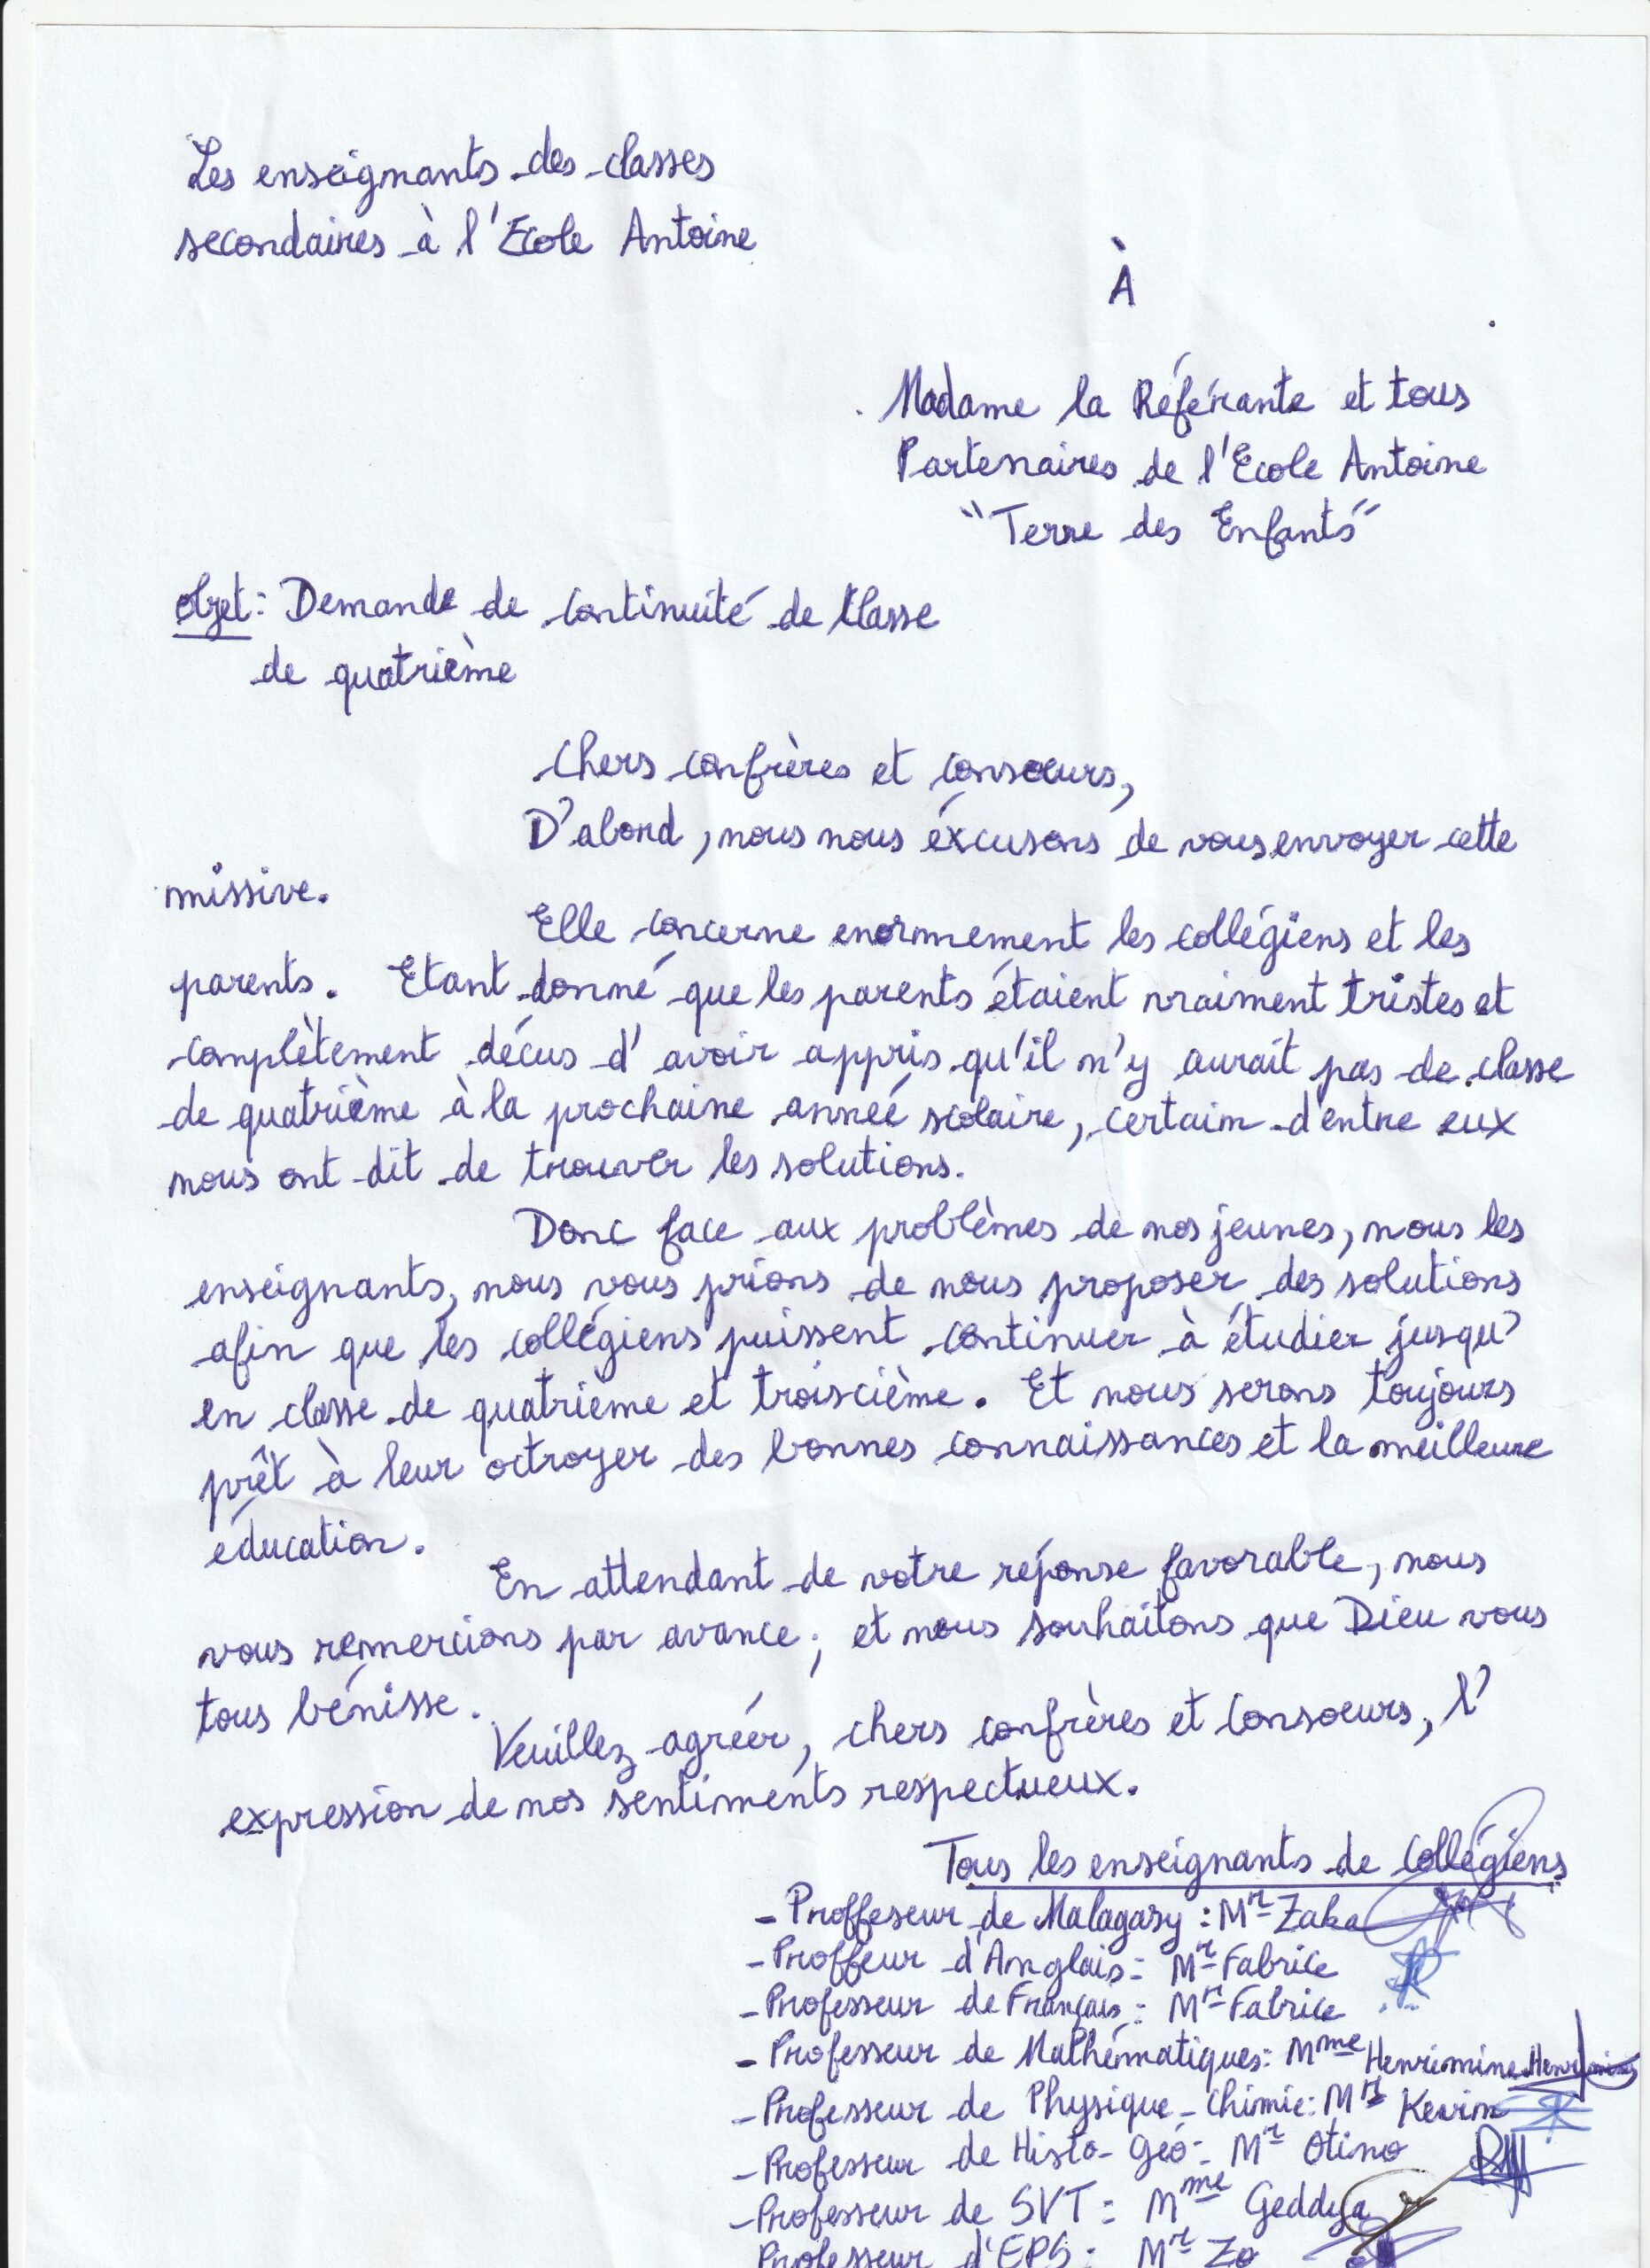 Les enseignants des classes
secondaires à l'Ecole Antoine
À
Madame la Référante et tous
Partenaires de l'Ecole Antoine
"Terre des Enfants"
Objet: Demande de continuité de classe
de quatrième
Chers confrères et consœurs,
D'abord, nous nous éxcusons de vous envoyer cette
missive.
Elle concerne enormement les collégiens et les
parents. Etant donné que les parents étaient vraiment tristes et
complètement décus d'avoir appris qu'il n'y aurait pas de classe
de quatrième à la prochaine anneé scolaire, certain d'entre eux
nous ont dit de trouver les solutions.
Donc face aux problèmes de nos jeunes, nous les
enseignants, nous vous prions de nous proposer des solutions
afin que les collégiens puissent continuer à étudier jusqu'
en classe de quatrième et troiscième. Et nous serons toujours
prêt à leur octroyer des bonnes connaissances et la meilleure
éducation.
En attendant de votre réponse favorable, nous
vous remercions par avance; et nous souhaitons que Dieu vous
tous bénisse.
Veuillez agréer, chers confrères et consœurs, l'
expression de nos sentiments respectueux.
Tous les enseignants de Collégiens
- Proffeseur de Malagasy: Mr Zaka
- Proffeur d'Anglais: Mr Fabrice
- Professeur de Français: Mr Fabrice
- Professeur de Mathématiques: Mme Henriomine
- Professeur de Physique-Chimie: Mr Kevin
- Professeur de Histo-Géo: Mr Otino
- Professeur de SVT: Mme Geddya
Professeur d'EPS: Mr Zo